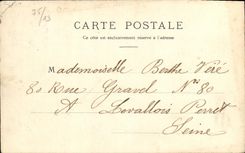 35/13
CARTE POSTALE
Ce côté est exclusivement réservé à l'adresse
Mademoiselle Berthe Véré
80 Rue Gravel Nº 80
A Levallois Perret
Seine